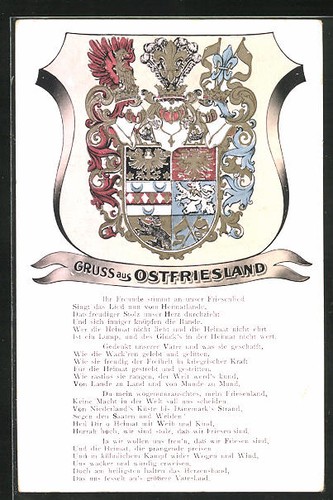 GRUSS aus OSTFRIESLAND
Ihr Freunde stimmt an unser Friesenlied
Singt das Lied nun vom Heimatlande,
Das freudiger Stolz unser Herz durchzieht
Und sich inniger knüpfen die Bande.
Wer die Heimat nicht liebt und die Heimat nicht ehrt
Ist ein Lump, und des Glück's in der Heimat nicht wert.
Gedenkt unserer Väter und was sie geschafft,
Wie die Wack'ren gelebt und gelitten,
Wie sie freudig der Freiheit in kriegrischer Kraft
Für die Heimat gestrebt und gestritten,
Wie rastlos sie rangen, der Welt werd's kund,
Von Lande zu Land und von Munde zu Mund.
Du mein wogenumrauschtes, mein Friesenland,
Keine Macht in der Welt soll uns scheiden
Von Niederland's Küste bis Dänemark's Strand,
Segen den Saaten und Weiden!
Heil Dir o Heimat mit Weib und Kind,
Hurrah hoch, wir sind stolz, daß wir Friesen sind.
Ja wir wollen uns freu'n, daß wir Friesen sind,
Und die Heimat, die prangende preisen
Und in kühnlichem Kampf wider Wogen und Wind,
Uns wacker und würdig erweisen,
Doch am heiligsten halten das Herzensband,
Das uns fesselt an's größere Vaterland.